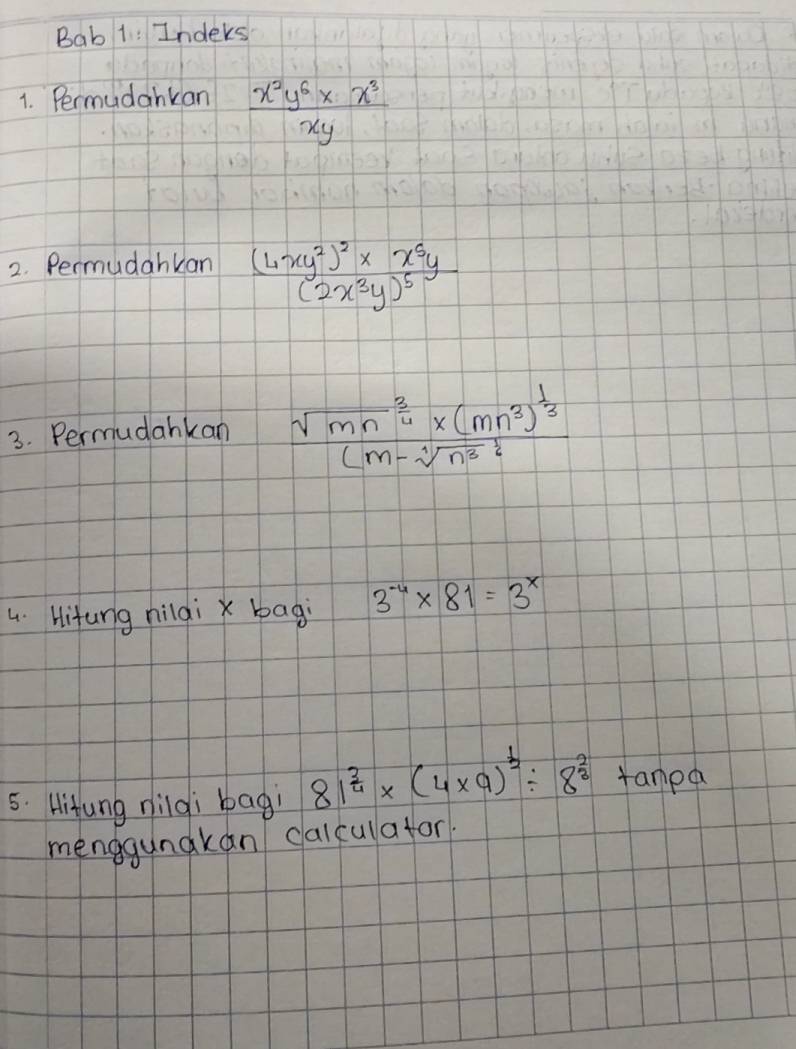 Bab 1: Indeks
1. Permudahkan x²y⁶ × x³ / xy
2. Permudahkan (4xy²)² × x⁵y / (2x³y)⁵
3. Permudahkan √mn^(3/4) × (mn³)^(1/3) / (m-∜n³^(1/2)
4. Hitung nilai x bagi 3⁻⁴ × 81 = 3ˣ
5. Hitung nilai bagi 81^(3/4) × (4×9)^(1/2) ÷ 8^(2/3) tanpa
menggunakan calculator.